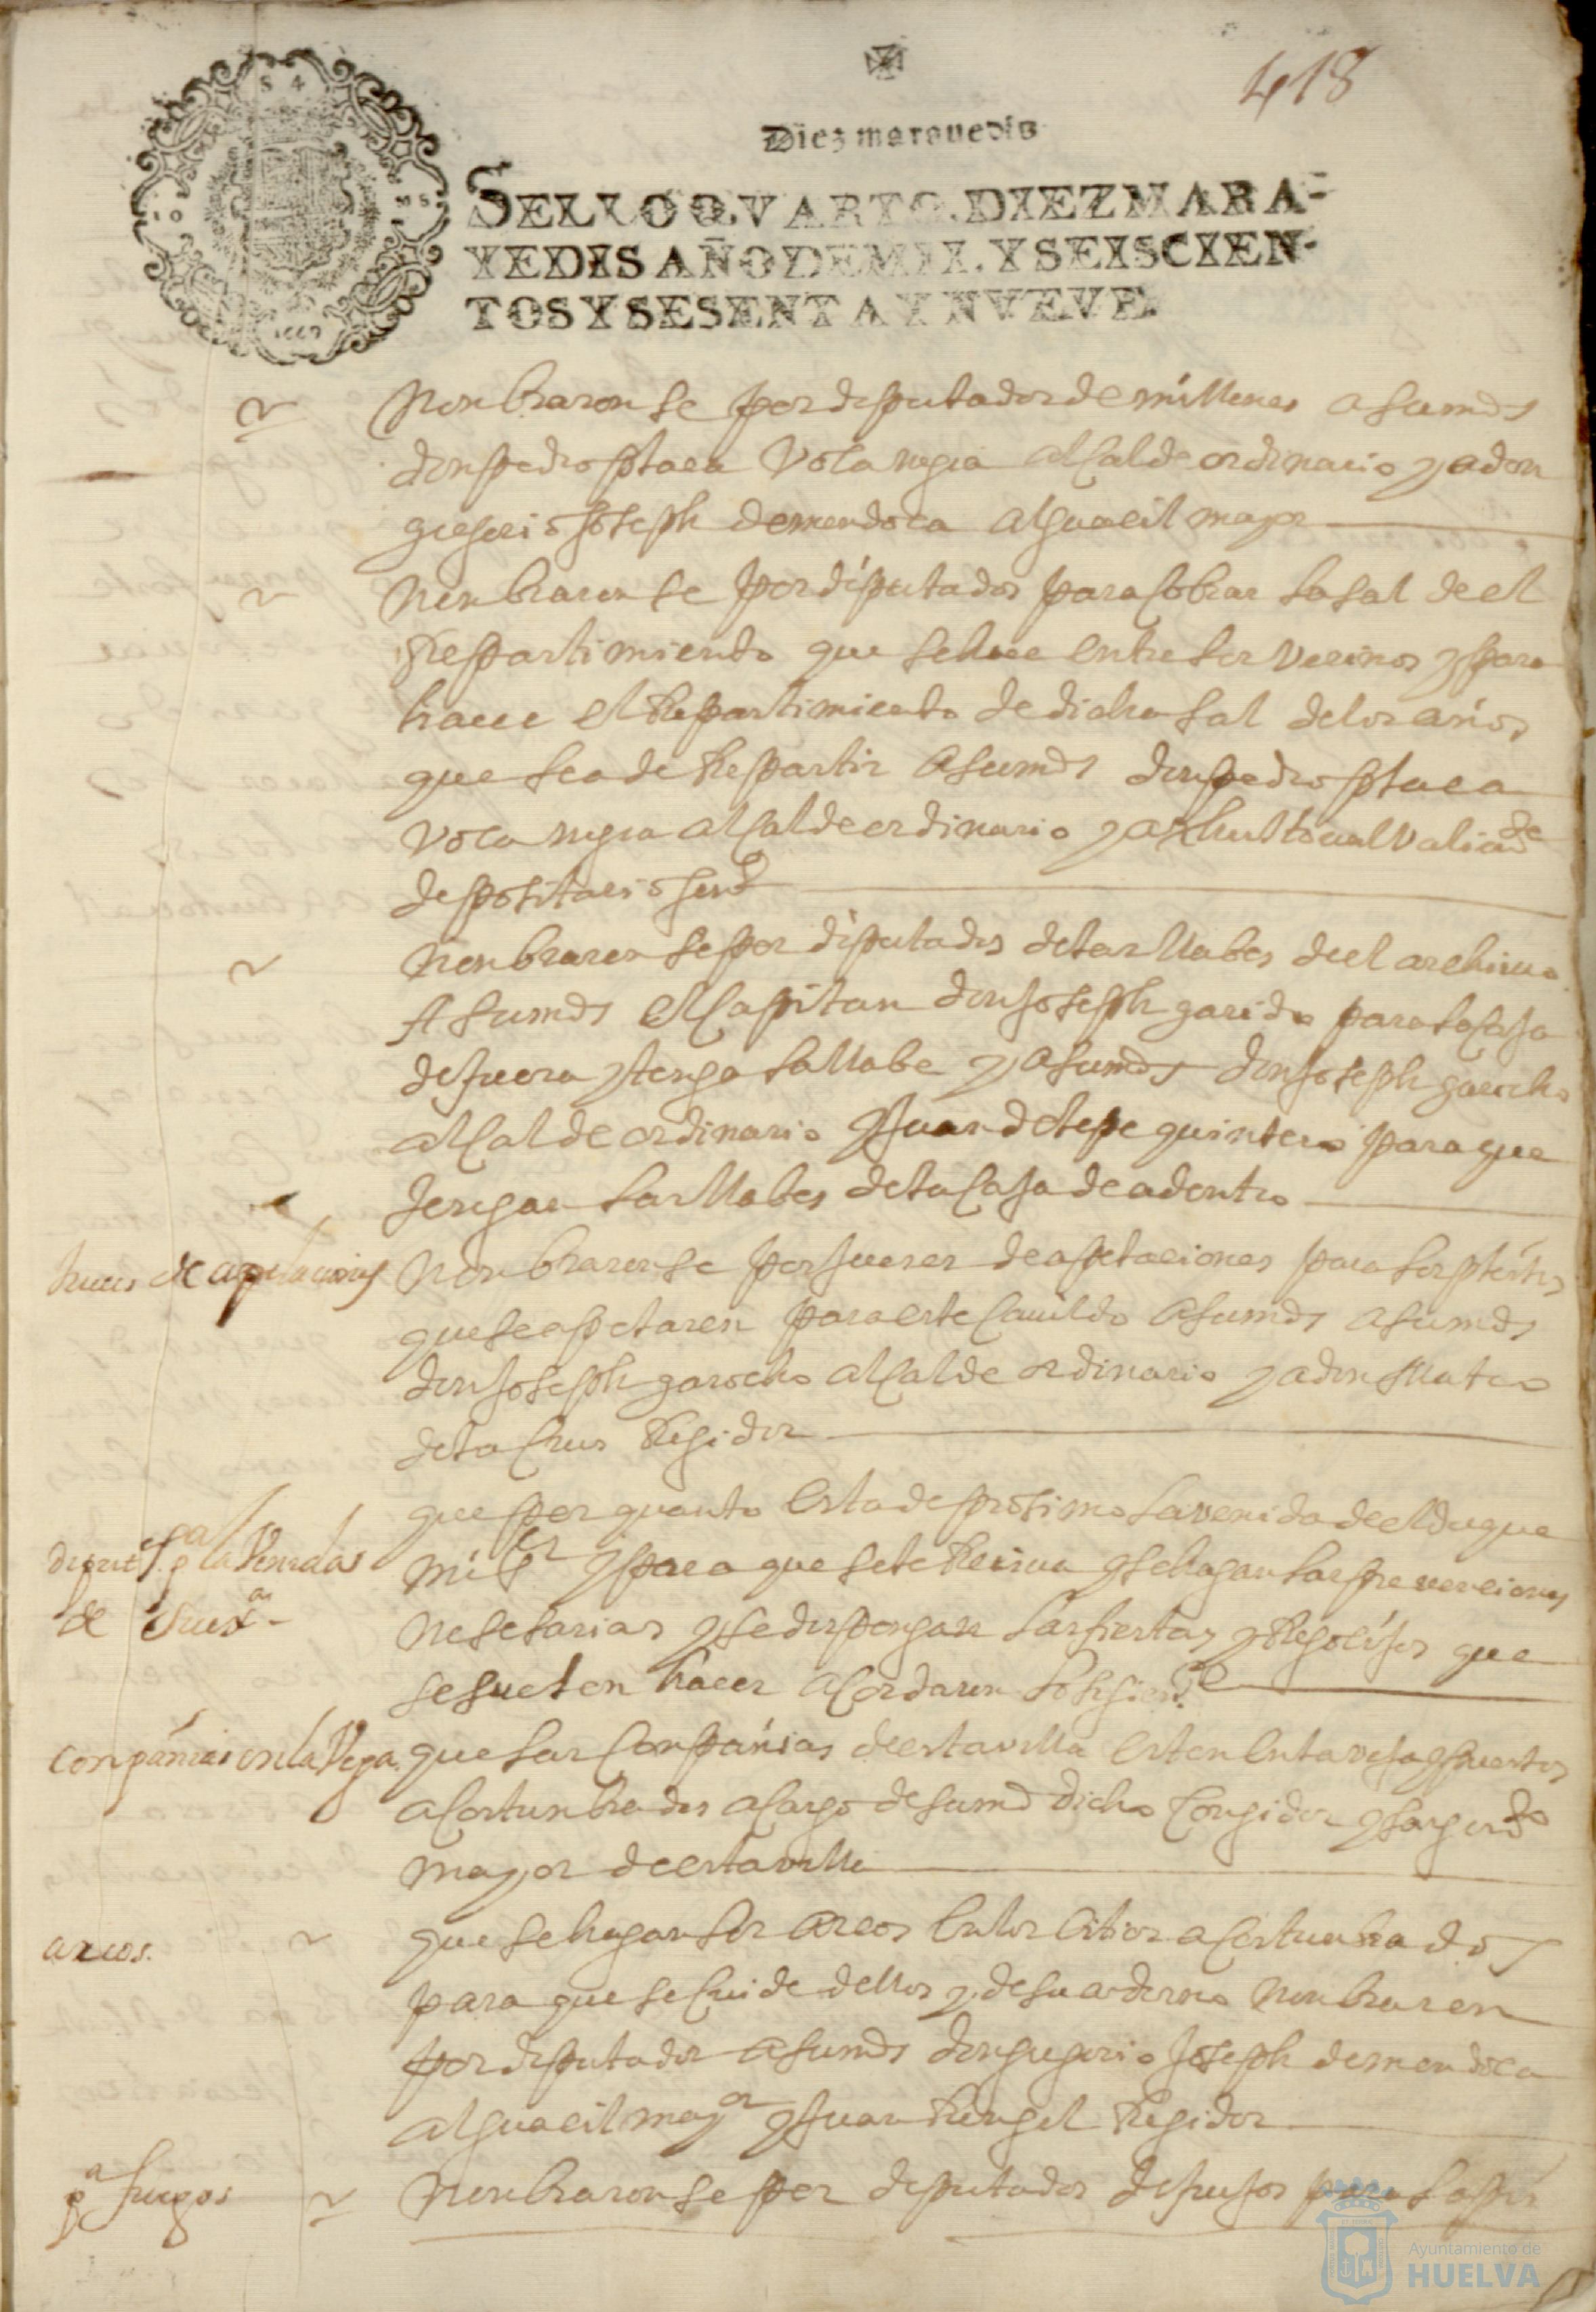 418
Diez maravedis
SELLO QVARTO, DIEZ MARA-
VEDIS AÑO DE MIL Y SEISCIEN-
TOS Y SESENTA Y NVEVE.
1669
Nonbraronse por diputados de millones a sumds
don pedro alcalde ordinario y a don
gregorio Joseph de mendoca alguacil mayor
Nonbraronse por diputados para cobrar la sal de el
Repartimiento que se hace entre los vecinos y para
hacer el Repartimiento de dicha sal de los años
que sea de Repartir a sumds don pedro
alcalde ordinario y a
depositario
Nonbraron se por diputados de las llabes de el archiuo
A sumds el Capitan don Joseph garido para la Caja
de fuera y tenga la llabe y a sumds don Joseph garocho
alcalde ordinario y Juan de lepe quintero para que
tengan las llabes de la Caja de adentro
Jueces de apelaciones
Nonbraronse por Jueces de apelaciones para los pleitos
que se apelaren para este Cauildo a sumds a sumds
don Joseph garocho alcalde ordinario y a don Mateo
de la Crus Regidor
diputs. pa la Venida
de Su exa
que por quanto esta de prosimo la venida de el duque
mi sr y para que se le Reciua y se hagan las prevenciones
nesesarias y se dispongan las fiestas y Regosijos que
se suelen hacer acordaron lo siguiente
conpánias en la Vega
que las Conpánias de esta villa esten en la vega y puestos
acostunbrados a Cargo de sumd dicho Coregidor y sargendo
mayor de esta villa
arcos.
que se hagan los arcos en los citios acostunbrados
para que se Cuide dellos y de su adereno nonbraron
por diputados a sumds don gregorio Joseph de mendoca
alguacil mayor y Juan Rengel Regidor
pa fuegos
Nonbraronse por diputados de fuegos para la
Ayuntamiento de
HUELVA